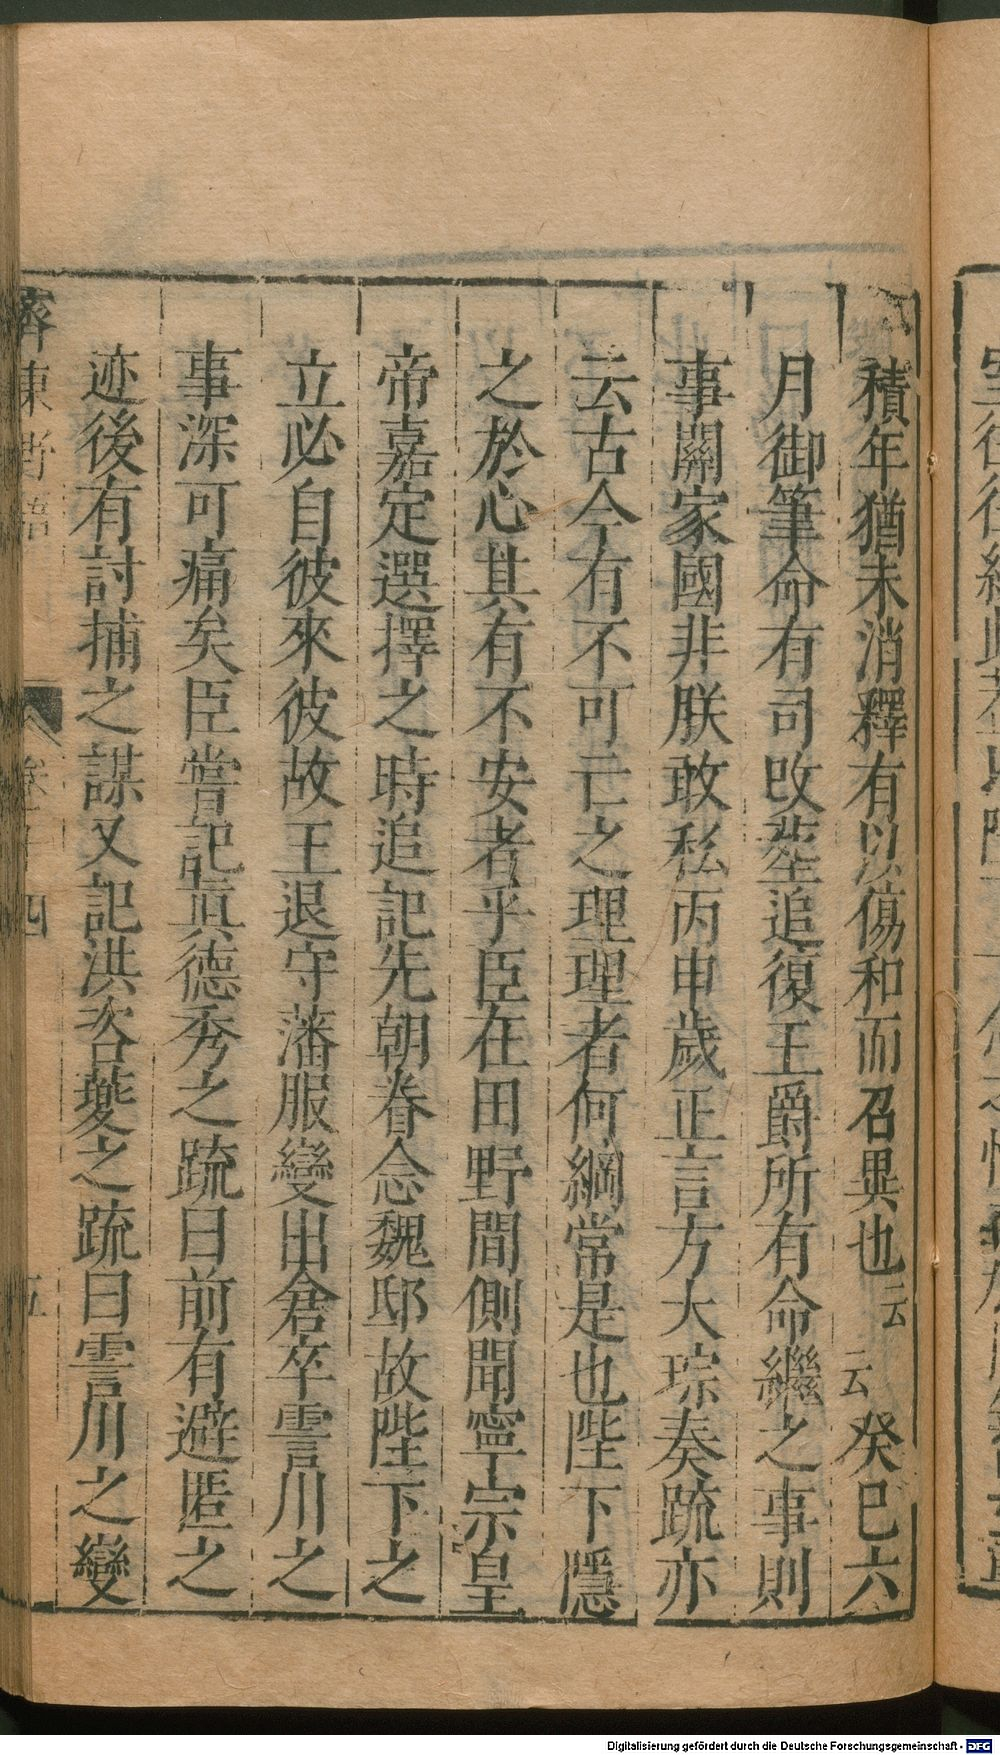 積年猶未消釋有以傷和而召異也云云癸巳六
月御筆命有司改塟追復王爵所有命繼之事則
事關家國非朕敢私丙申歲正言方大琮奏疏亦
云古今有不可亡之理理者何綱常是也陛下隱
之於心其有不安者乎臣在田野間側聞寧宗皇
帝嘉定選擇之時追記先朝眷念魏邸故陛下之
立必自彼來彼故王退守藩服變出倉卒霅川之
事深可痛矣臣嘗記眞德秀之疏曰前有避匿之
迹後有討捕之謀又記洪咨夔之疏曰霅川之變
齊東野語
卷十四
五
Digitalisierung gefördert durch die Deutsche Forschungsgemeinschaft - DFG